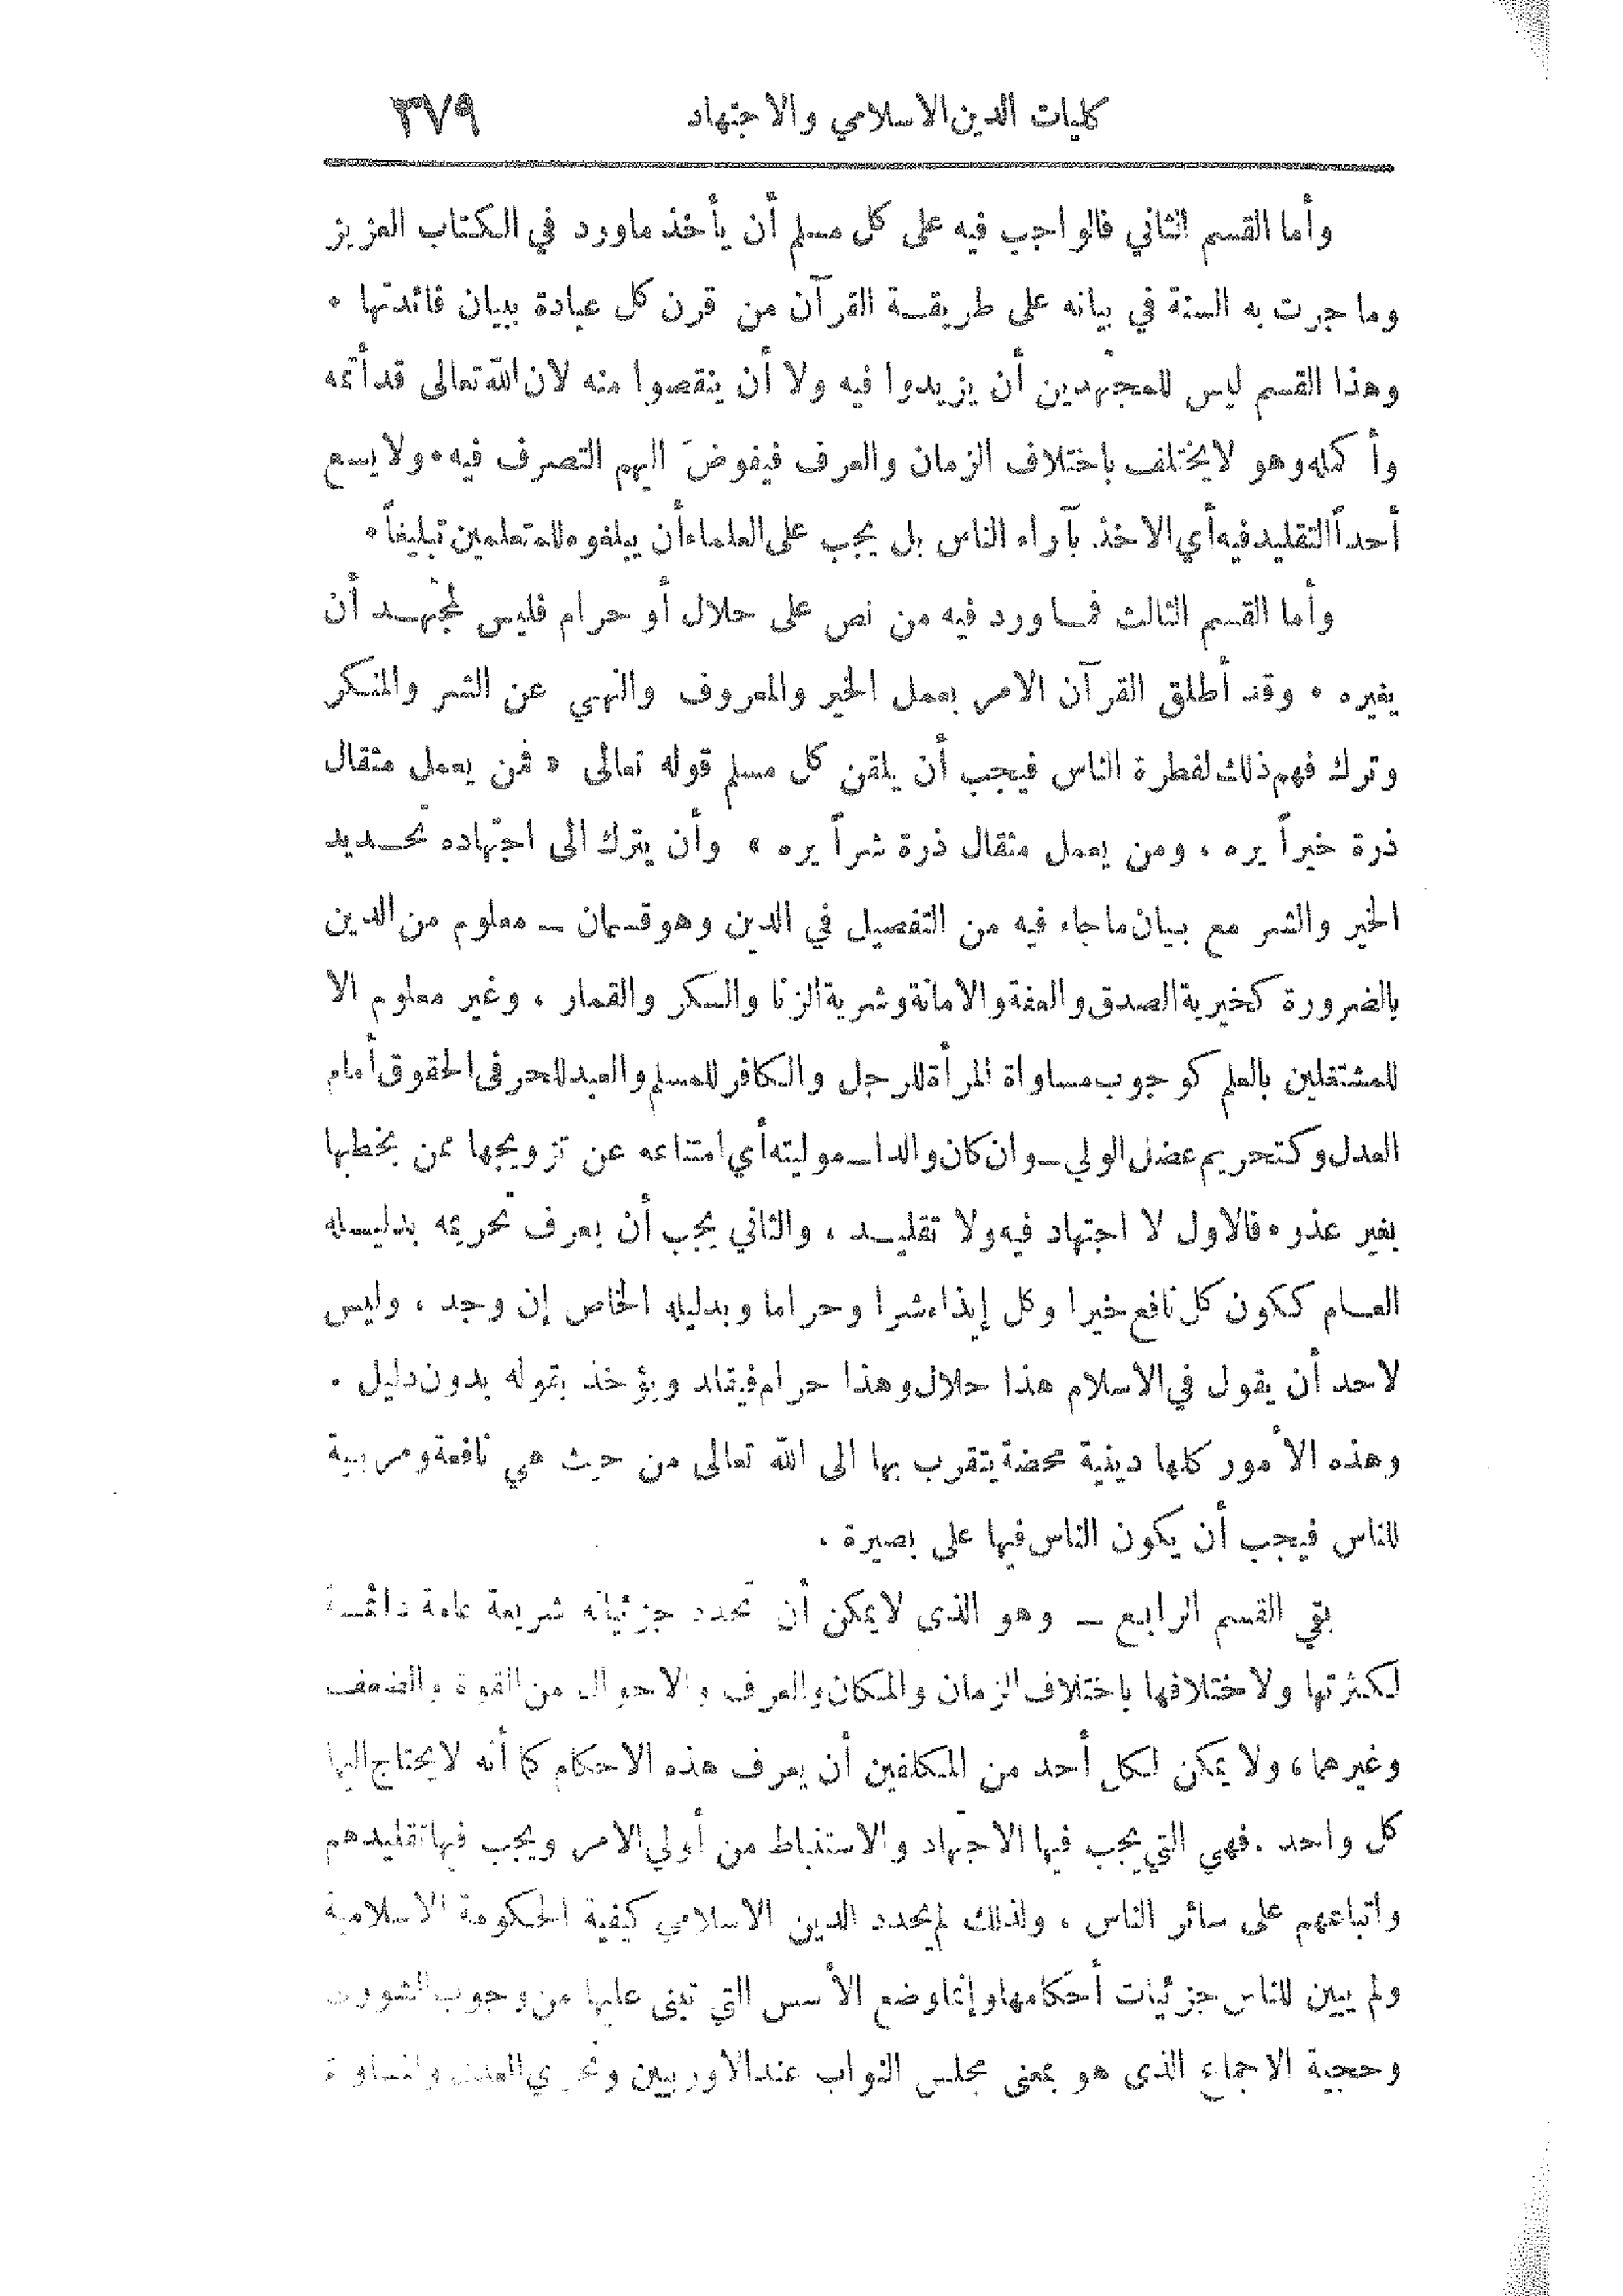 كليات الدين الاسلامي والاجتهاد ٣٧٩
وأما القسم الثاني فالواجب فيه على كل مسلم أن يأخذ ماورد في الكتاب العزيز
وما جرت به السنة في بيانه على طريقة القرآن من قرن كل عبادة ببيان فائدتها .
وهذا القسم ليس للمجتهدين أن يزيدوا فيه ولا أن ينقصوا منه لان الله تعالى قد أتمه
وأكمله وهو لايختلف باختلاف الزمان والعرف فيفوض اليهم التصرف فيه . ولا يسع
أحداً التقليد فيه أي الاخذ بآراء الناس بل يجب على العلماء أن يبلغوه للمتعلمين تبليغاً .
وأما القسم الثالث فما ورد فيه من نص على حلال أو حرام فليس لمجتهد أن
يغيره . وقد أطلق القرآن الامر بعمل الخير والمعروف والنهي عن الشر والمنكر
وترك فهم ذلك لفطرة الناس فيجب أن يلقن كل مسلم قوله تعالى « فمن يعمل مثقال
ذرة خيراً يره ، ومن يعمل مثقال ذرة شراً يره » وأن يترك الى اجتهاده تحديد
الخير والشر مع بيان ماجاء فيه من التفصيل في الدين وهو قسمان ــ معلوم من الدين
بالضرورة كخيرية الصدق والعفة والامانة وشرية الزنا والسكر والقمار ، وغير معلوم الا
للمشتغلين بالعلم كوجوب مساواة المرأة للرجل والكافر للمسلم والعبد للحر في الحقوق أمام
العدل وكتحريم عضل الولي ــ وان كان والدا ــ موليته أي امتناعه عن تزويجها ممن يخطبها
بغير عذر . فالاول لا اجتهاد فيه ولا تقليد ، والثاني يجب أن يعرف تحريمه بدليله
العام ككون كل نافع خيرا وكل إيذاء شرا وحراما وبدليله الخاص إن وجد ، وليس
لاحد أن يقول في الاسلام هذا حلال وهذا حرام فيقلد ويؤخذ بقوله بدون دليل .
وهذه الأمور كلها دينية محضة يتقرب بها الى الله تعالى من حيث هي نافعة ومربية
للناس فيجب أن يكون الناس فيها على بصيرة .
بقي القسم الرابع ــ وهو الذى لايمكن أن تحدد جزئياته شريعة عامة دائمة
لكثرتها ولاختلافها باختلاف الزمان والمكان والعرف والاحوال من القوة والضعف
وغيرهما ، ولا يمكن لكل أحد من المكلفين أن يعرف هذه الاحكام كما أنه لا يحتاج اليها
كل واحد . فهي التي يجب فيها الاجتهاد والاستنباط من أولي الامر ويجب فيها تقليدهم
واتباعهم على سائر الناس ، ولذلك لم يحدد الدين الاسلامي كيفية الحكومة الاسلامية
ولم يبين للناس جزئيات أحكامها وإنما وضع الأسس التي تبنى عليها من وجوب الشورى
وحجية الاجماع الذى هو بمعنى مجلس النواب عند الاوربيين وتحري العدل والمساواة